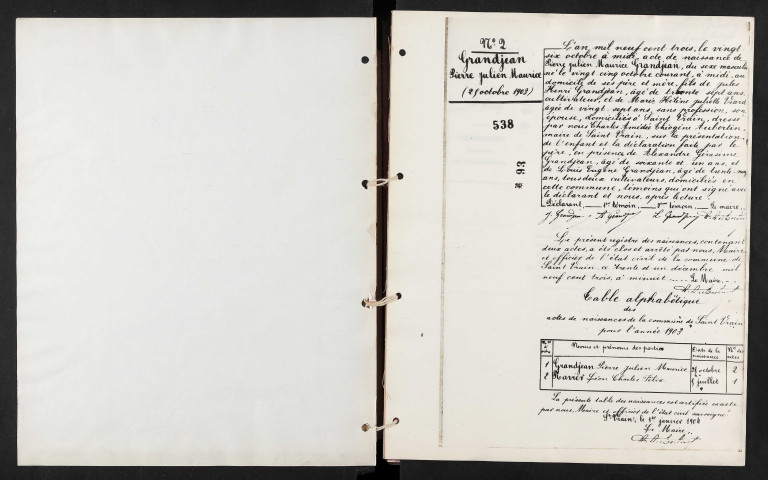 N° 2
Grandjean
Pierre Julien Maurice
(25 octobre 1903)
538
93
L'an mil neuf cent trois, le vingt
six octobre à midi, acte de naissance de
Pierre Julien Maurice Grandjean, du sexe masculin
né le vingt cinq octobre courant, à midi, au
domicile de ses père et mère, fils de Jules
Henri Grandjean, âgé de trente sept ans,
cultivateur, et de Marie Hélène Juliette
âgée de vingt sept ans, sans profession, son
épouse, domiciliés à Saint Vrain, dressé
par nous Charles Amédée Théogène Aubertin
maire de Saint Vrain, sur la présentation
de l'enfant et la déclaration faite par le
père, en présence de Alexandre
Grandjean, âgé de soixante et un ans, et
de Louis Eugène Grandjean, âgé de
ans, tous deux cultivateurs, domiciliés en
cette commune, témoins qui ont signé avec
le déclarant et nous, après lecture
Déclarant, 1er témoin, témoin, Le maire,
Le présent registre des naissances, contenant
deux actes, a été clos et arrêté par nous, Maire
et officier de l'état civil de la commune de
Saint Vrain, ce trente et un décembre mil
neuf cent trois, à minuit Le Maire,
Table alphabétique
des
actes de naissances de la commune de Saint Vrain
pour l'année 1903
Noms et prénoms des parties Date de la naissance N° des actes
1 Grandjean Pierre Julien Maurice 25 octobre 2
2 Léon Charles Félix juillet 1
La présente table des naissances est certifiée exacte
par nous, Maire et officier de l'état civil soussigné
St Vrain, le 1er janvier 1904
Le Maire,